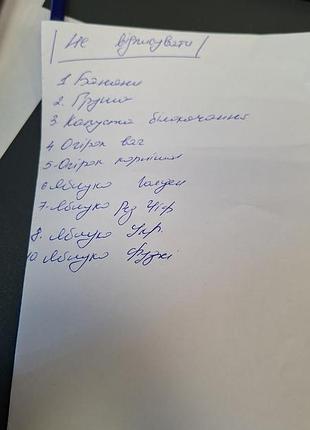 Не відписувати
1 Банани
2. Груша
3 Капуста білокачанна
4 Огірок ваг
5. Огірок корнішон
6 Яблуко Голден
7. Яблуко Рэд Чіф
8. Яблуко Укр.
10. Яблуко Фузкі